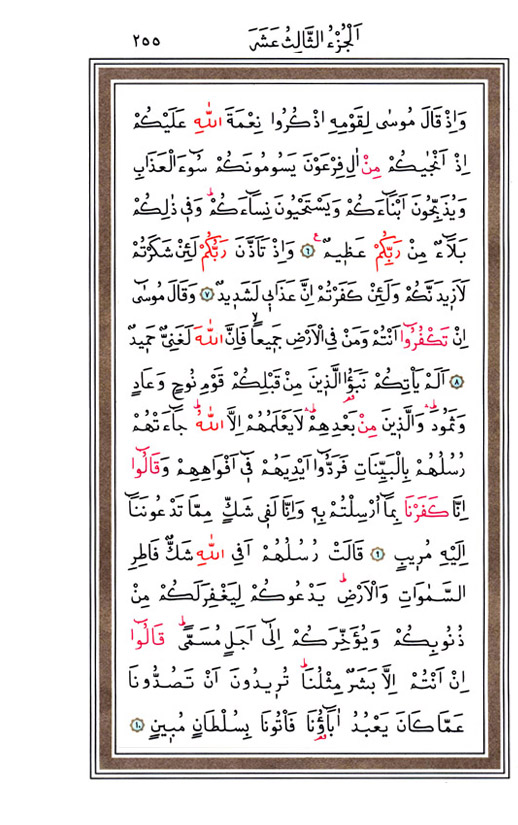 الجُزْءُ الثَّالِثُ عَشَرَ ٢٥٥
وَاِذْ قَالَ مُوسٰى لِقَوْمِهِ اذْكُرُوا نِعْمَةَ اللّٰهِ عَلَيْكُمْ
اِذْ اَنْجٰيكُمْ مِنْ اٰلِ فِرْعَوْنَ يَسُومُونَكُمْ سُٓوءَ الْعَذَابِ
وَيُذَبِّحُونَ اَبْنَٓاءَكُمْ وَيَسْتَحْيُونَ نِسَٓاءَكُمْۜ وَفٖي ذٰلِكُمْ
بَلَٓاءٌ مِنْ رَبِّكُمْ عَظٖيمٌࣖ ﴿٦﴾ وَاِذْ تَاَذَّنَ رَبُّكُمْ لَئِنْ شَكَرْتُمْ
لَاَزٖيدَنَّكُمْ وَلَئِنْ كَفَرْتُمْ اِنَّ عَذَابٖي لَشَدٖيدٌ ﴿٧﴾ وَقَالَ مُوسٰٓى
اِنْ تَكْفُرُٓوا اَنْتُمْ وَمَنْ فِي الْاَرْضِ جَمٖيعاًۙ فَاِنَّ اللّٰهَ لَغَنِيٌّ حَمٖيدٌ
﴿٨﴾ اَلَمْ يَأْتِكُمْ نَبَؤُا الَّذٖينَ مِنْ قَبْلِكُمْ قَوْمِ نُوحٍ وَعَادٍ
وَثَمُودَۜ وَالَّذٖينَ مِنْ بَعْدِهِمْۜ لَا يَعْلَمُهُمْ اِلَّا اللّٰهُۜ جَٓاءَتْهُمْ
رُسُلُهُمْ بِالْبَيِّنَاتِ فَرَدُّٓوا اَيْدِيَهُمْ فٖٓي اَفْوَاهِهِمْ وَقَالُٓوا
اِنَّا كَفَرْنَا بِمَٓا اُرْسِلْتُمْ بِهٖ وَاِنَّا لَفٖي شَكٍّ مِمَّا تَدْعُونَنَٓا
اِلَيْهِ مُرٖيبٍ ﴿٩﴾ قَالَتْ رُسُلُهُمْ اَفِي اللّٰهِ شَكٌّ فَاطِرِ
السَّمٰوَاتِ وَالْاَرْضِۜ يَدْعُوكُمْ لِيَغْفِرَ لَكُمْ مِنْ
ذُنُوبِكُمْ وَيُؤَخِّرَكُمْ اِلٰٓى اَجَلٍ مُسَمًّىۜ قَالُٓوا
اِنْ اَنْتُمْ اِلَّا بَشَرٌ مِثْلُنَاۜ تُرٖيدُونَ اَنْ تَصُدُّونَا
عَمَّا كَانَ يَعْبُدُ اٰبَٓاؤُ۬نَا فَأْتُونَا بِسُلْطَانٍ مُبٖينٍ ﴿١٠﴾